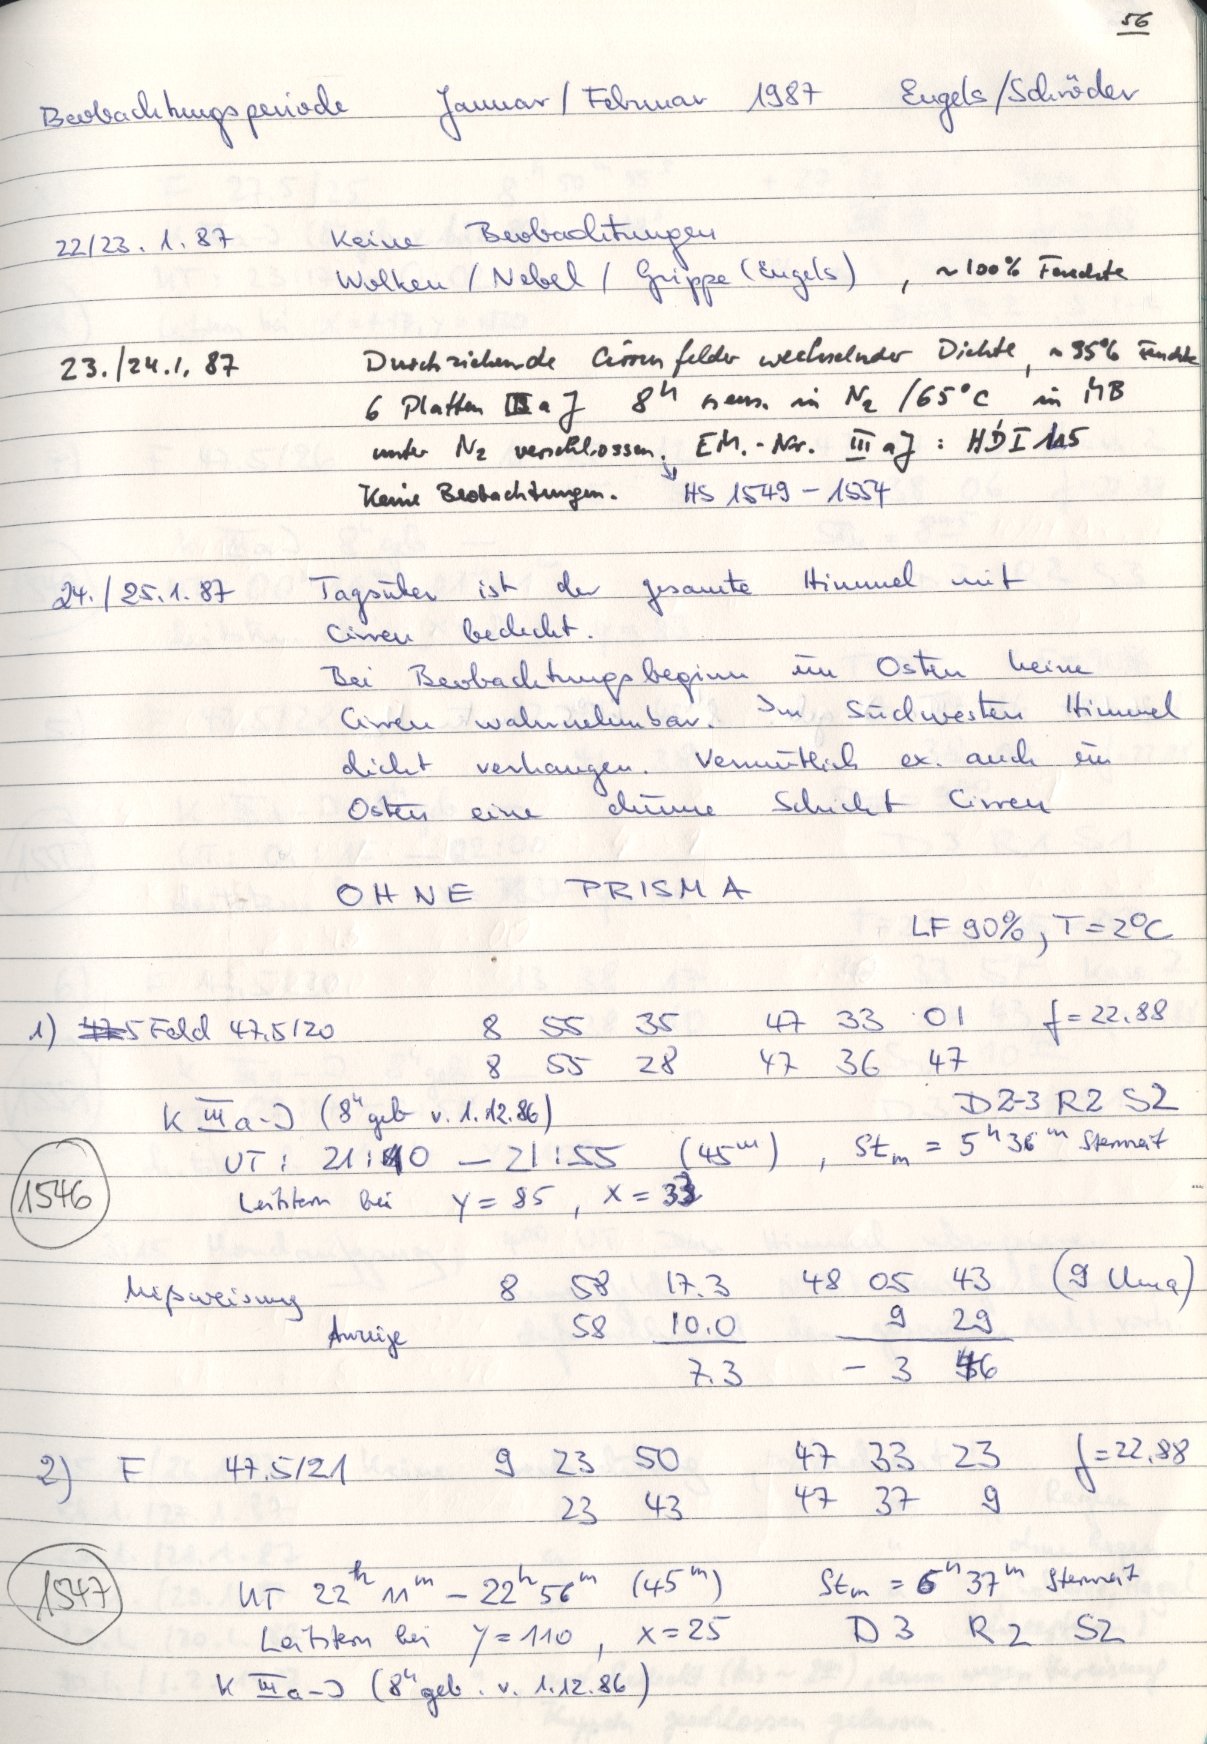 56
Beobachtungsperiode Januar/Februar 1987 Engels/Schröder
22/23. 1. 87 Keine Beobachtungen
Wolken / Nebel / Grippe (Engels) , ~100% Feuchte
23./24.1. 87 Durchziehende Cirrenfelder wechselnder Dichte, ~95% Feuchte
6 Platten IIIaJ 8h sens. in N2 /65°C in MB
unter N2 verschlossen. EM.-Nr. IIIaJ : HDI 115
Keine Beobachtungen. HS 1549 – 1554
24./25.1.87 Tagsüber ist der gesamte Himmel mit
Cirren bedeckt.
Bei Beobachtungsbeginn im Osten keine
Cirren wahrnehmbar. Im Südwesten Himmel
dicht verhangen. Vermutlich ex. auch im
Osten eine dünne Schicht Cirren
OHNE PRISMA
LF 90%, T=2°C
1) Feld 47.5/20 8 55 35 47 33 01 f=22.88
8 55 28 47 36 47
K IIIa-J (8h geb v. 1.12.86) D2-3 R2 S2
UT: 21:10 – 21:55 (45m) , Stm = 5h 36m Sternzeit
1546
Leitstern bei y = 85 , x = 33
Mißweisung 8 58 17.3 48 05 43 (9 Uma)
Anzeige 58 10.0 9 29
7.3 – 3 46
2) F 47.5/21 9 23 50 47 33 23 f=22.88
23 43 47 37 9
1547
UT 22h 11m – 22h 56m (45m) Stm = 6h 37m Sternzeit
Leitstern bei y=110 , x=25 D3 R2 S2
K IIIa-J (8h geb. v. 1.12.86)